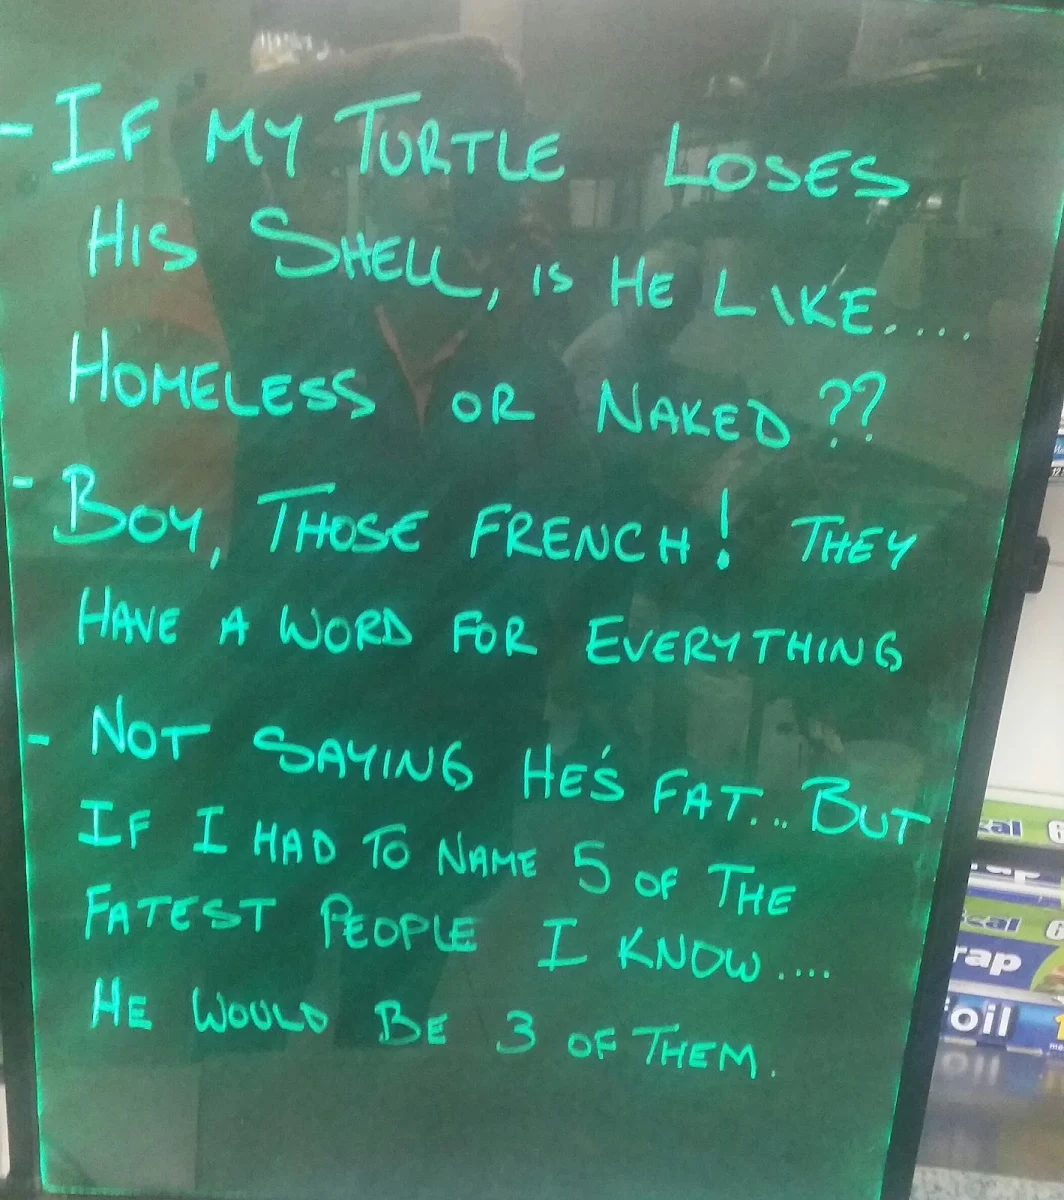 - IF MY TURTLE LOSES
HIS SHELL, IS HE LIKE....
HOMELESS OR NAKED??
- BOY, THOSE FRENCH! THEY
HAVE A WORD FOR EVERYTHING
- NOT SAYING HE'S FAT... BUT
IF I HAD TO NAME 5 OF THE
FATEST PEOPLE I KNOW....
HE WOULD BE 3 OF THEM.
rap
oil